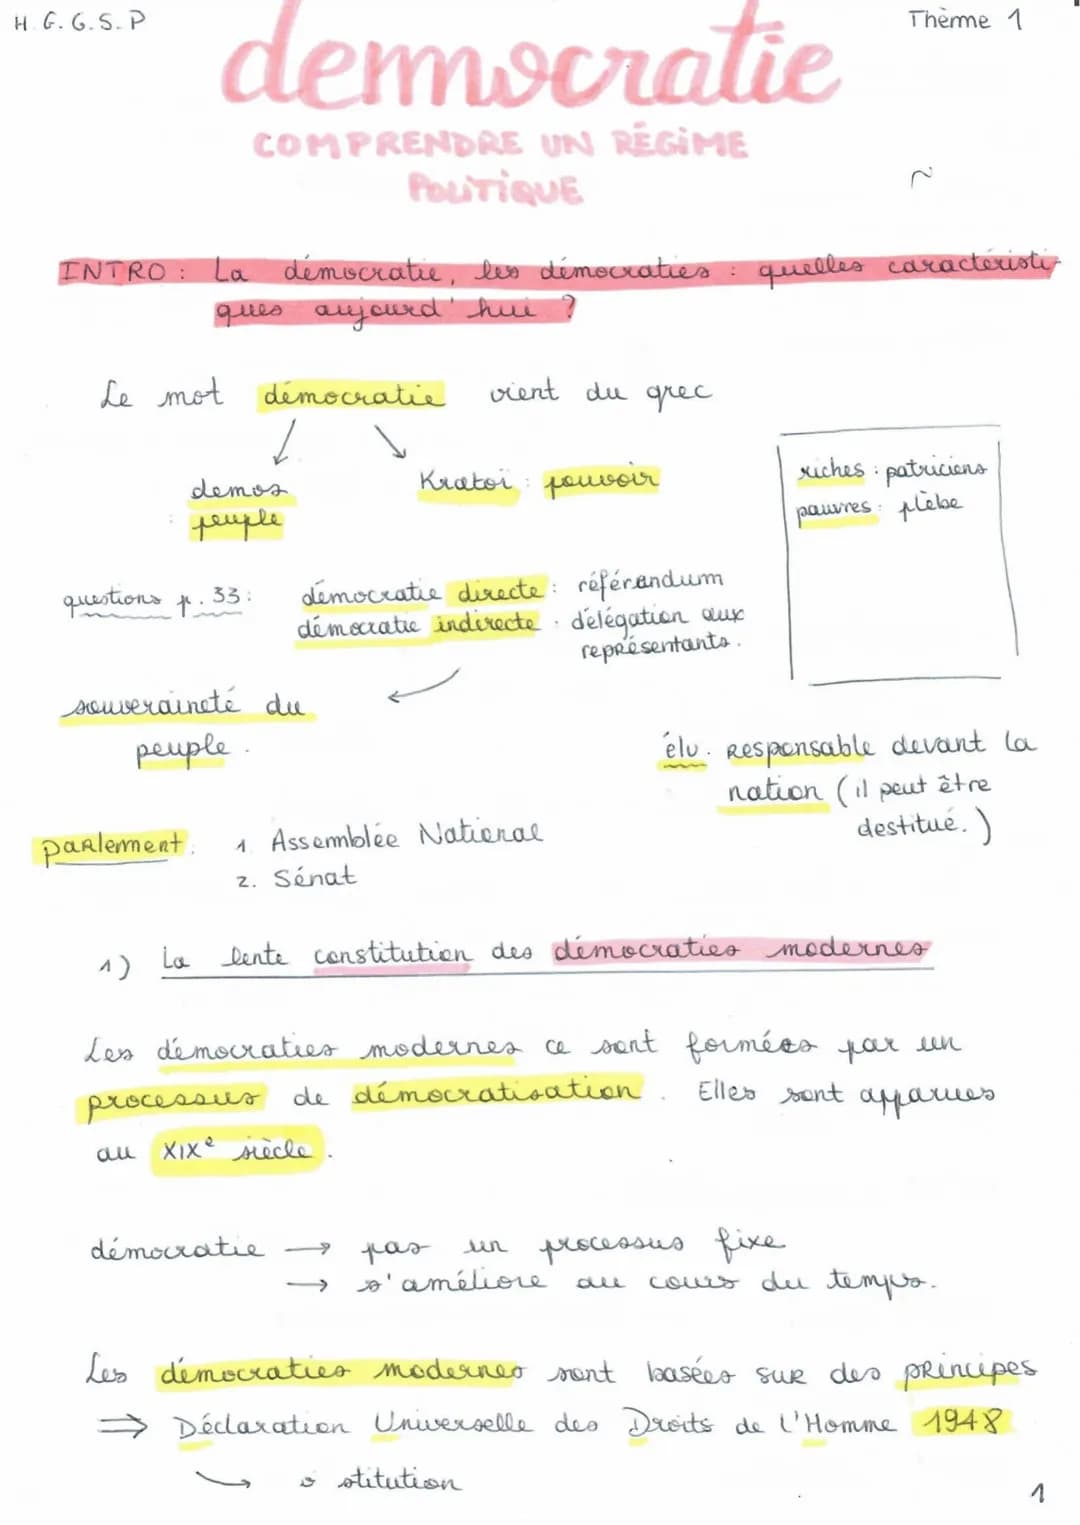 H.G.G.S.P
Thème 1
démocratie
COMPRENDRE UN RÉGIME
POLITIQUE
INTRO : La démocratie, les démocraties : quelles caractéristi-
ques aujourd'hui ?
Le mot démocratie vient du grec
demos
: peuple
Kratoï : pouvoir
riches : patriciens
pauvres : plèbe
questions p. 33 :
démocratie directe : référendum
démocratie indirecte : délégation aux
représentants.
souveraineté du
peuple.
élu. Responsable devant la
nation (il peut être
destitué.)
parlement : 1. Assemblée National
2. Sénat
1) La lente constitution des démocraties modernes
Les démocraties modernes ce sont formées par un
processus de démocratisation. Elles sont apparues
au XIXe siècle.
démocratie → pas un processus fixe
→ s'améliore au cours du temps.
Les démocraties modernes sont basées sur des principes
⇒ Déclaration Universelle des Droits de l'Homme 1948
stitution
1